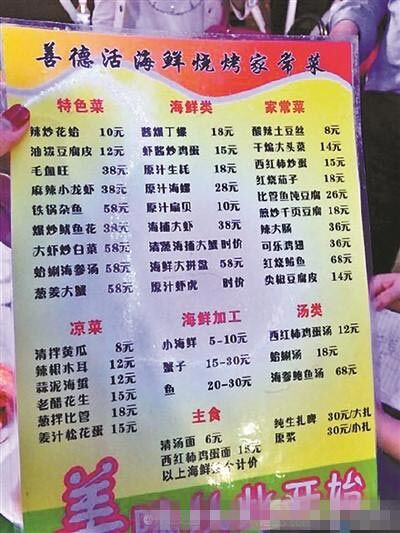 善德活海鲜烧烤家常菜
特色菜
辣炒花蛤 10元
油泼豆腐皮 12元
毛血旺 38元
麻辣小龙虾 38元
铁锅杂鱼 58元
爆炒鱿鱼花 38元
大虾炒白菜 58元
蛤蜊海参汤 58元
葱姜大蟹 58元
海鲜类
酱爆丁螺 18元
虾酱炒鸡蛋 15元
原汁生蚝 18元
原汁海螺 28元
原汁扇贝 10元
海捕大虾 38元
清蒸海捕大蟹 时价
海鲜大拼盘 58元
原汁虾虎 时价
家常菜
酸辣土豆丝 8元
干煸大头菜 14元
西红柿炒蛋 15元
红烧茄子 18元
比管鱼炖豆腐 26元
煎炒千页豆腐 18元
辣大肠 36元
可乐鸡翅 36元
红烧鲅鱼 68元
尖椒豆腐皮 14元
凉菜
清拌黄瓜 8元
辣根木耳 12元
蒜泥海蜇 12元
老醋花生 12元
葱拌比管 18元
姜汁松花蛋 15元
海鲜加工
小海鲜 5-10元
蟹子 15-30元
鱼 20-30元
汤类
西红柿鸡蛋汤 12元
蛤蜊汤 18元
海参鲍鱼汤 68元
主食
清汤面 6元
西红柿鸡蛋面 15元
以上海鲜 个计价
纯生扎啤 30元/大扎
原浆 30元/小扎
美味从此开始